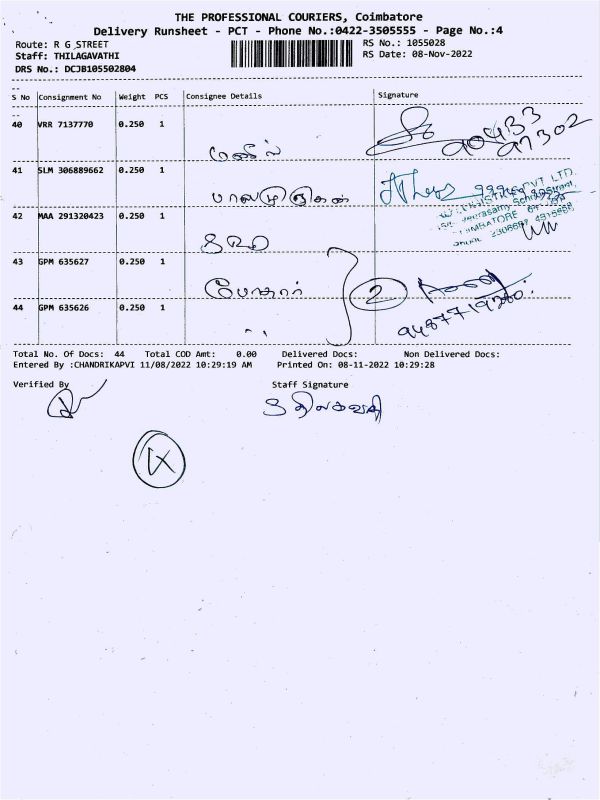 THE PROFESSIONAL COURIERS, Coimbatore
Delivery Runsheet - PCT - Phone No.:0422-3505555 - Page No.:4
Route: R G STREET
Staff: THILAGAVATHI
DRS No.: DCJB105502804
RS No.: 1055028
RS Date: 08-Nov-2022
S No Consignment No Weight PCS Consignee Details Signature
40 VRR 7137770 0.250 1
90433
97302
41 SLM 306889662 0.250 1
PVT LTD.
42 MAA 291320423 0.250 1
43 GPM 635627 0.250 1
போதார்
2
44 GPM 635626 0.250 1
" 
Total No. Of Docs: 44 Total COD Amt: 0.00 Delivered Docs: Non Delivered Docs:
Entered By :CHANDRIKAPVI 11/08/2022 10:29:19 AM Printed On: 08-11-2022 10:29:28
Verified By Staff Signature
திலகவதி